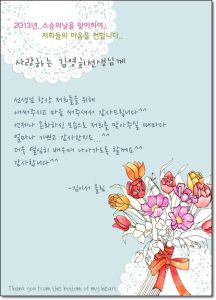 2013년..스승의날을 맞이하여..
저희들의 마음을 전합니다..
사랑하는 김영희선생님께
선생님 항상 저희들을 위해
애써주시고 마음 써주셔서 감사드립니다^^
언제나 온화하신 모습으로 저희를 맞아주실 때마다
얼마나 기쁘고 감사한지요..^^
더욱 열심히 배우며 나아가도록 할게요^^
감사합니다^^
-김이서 올림
Thank you from the bottom of my heart